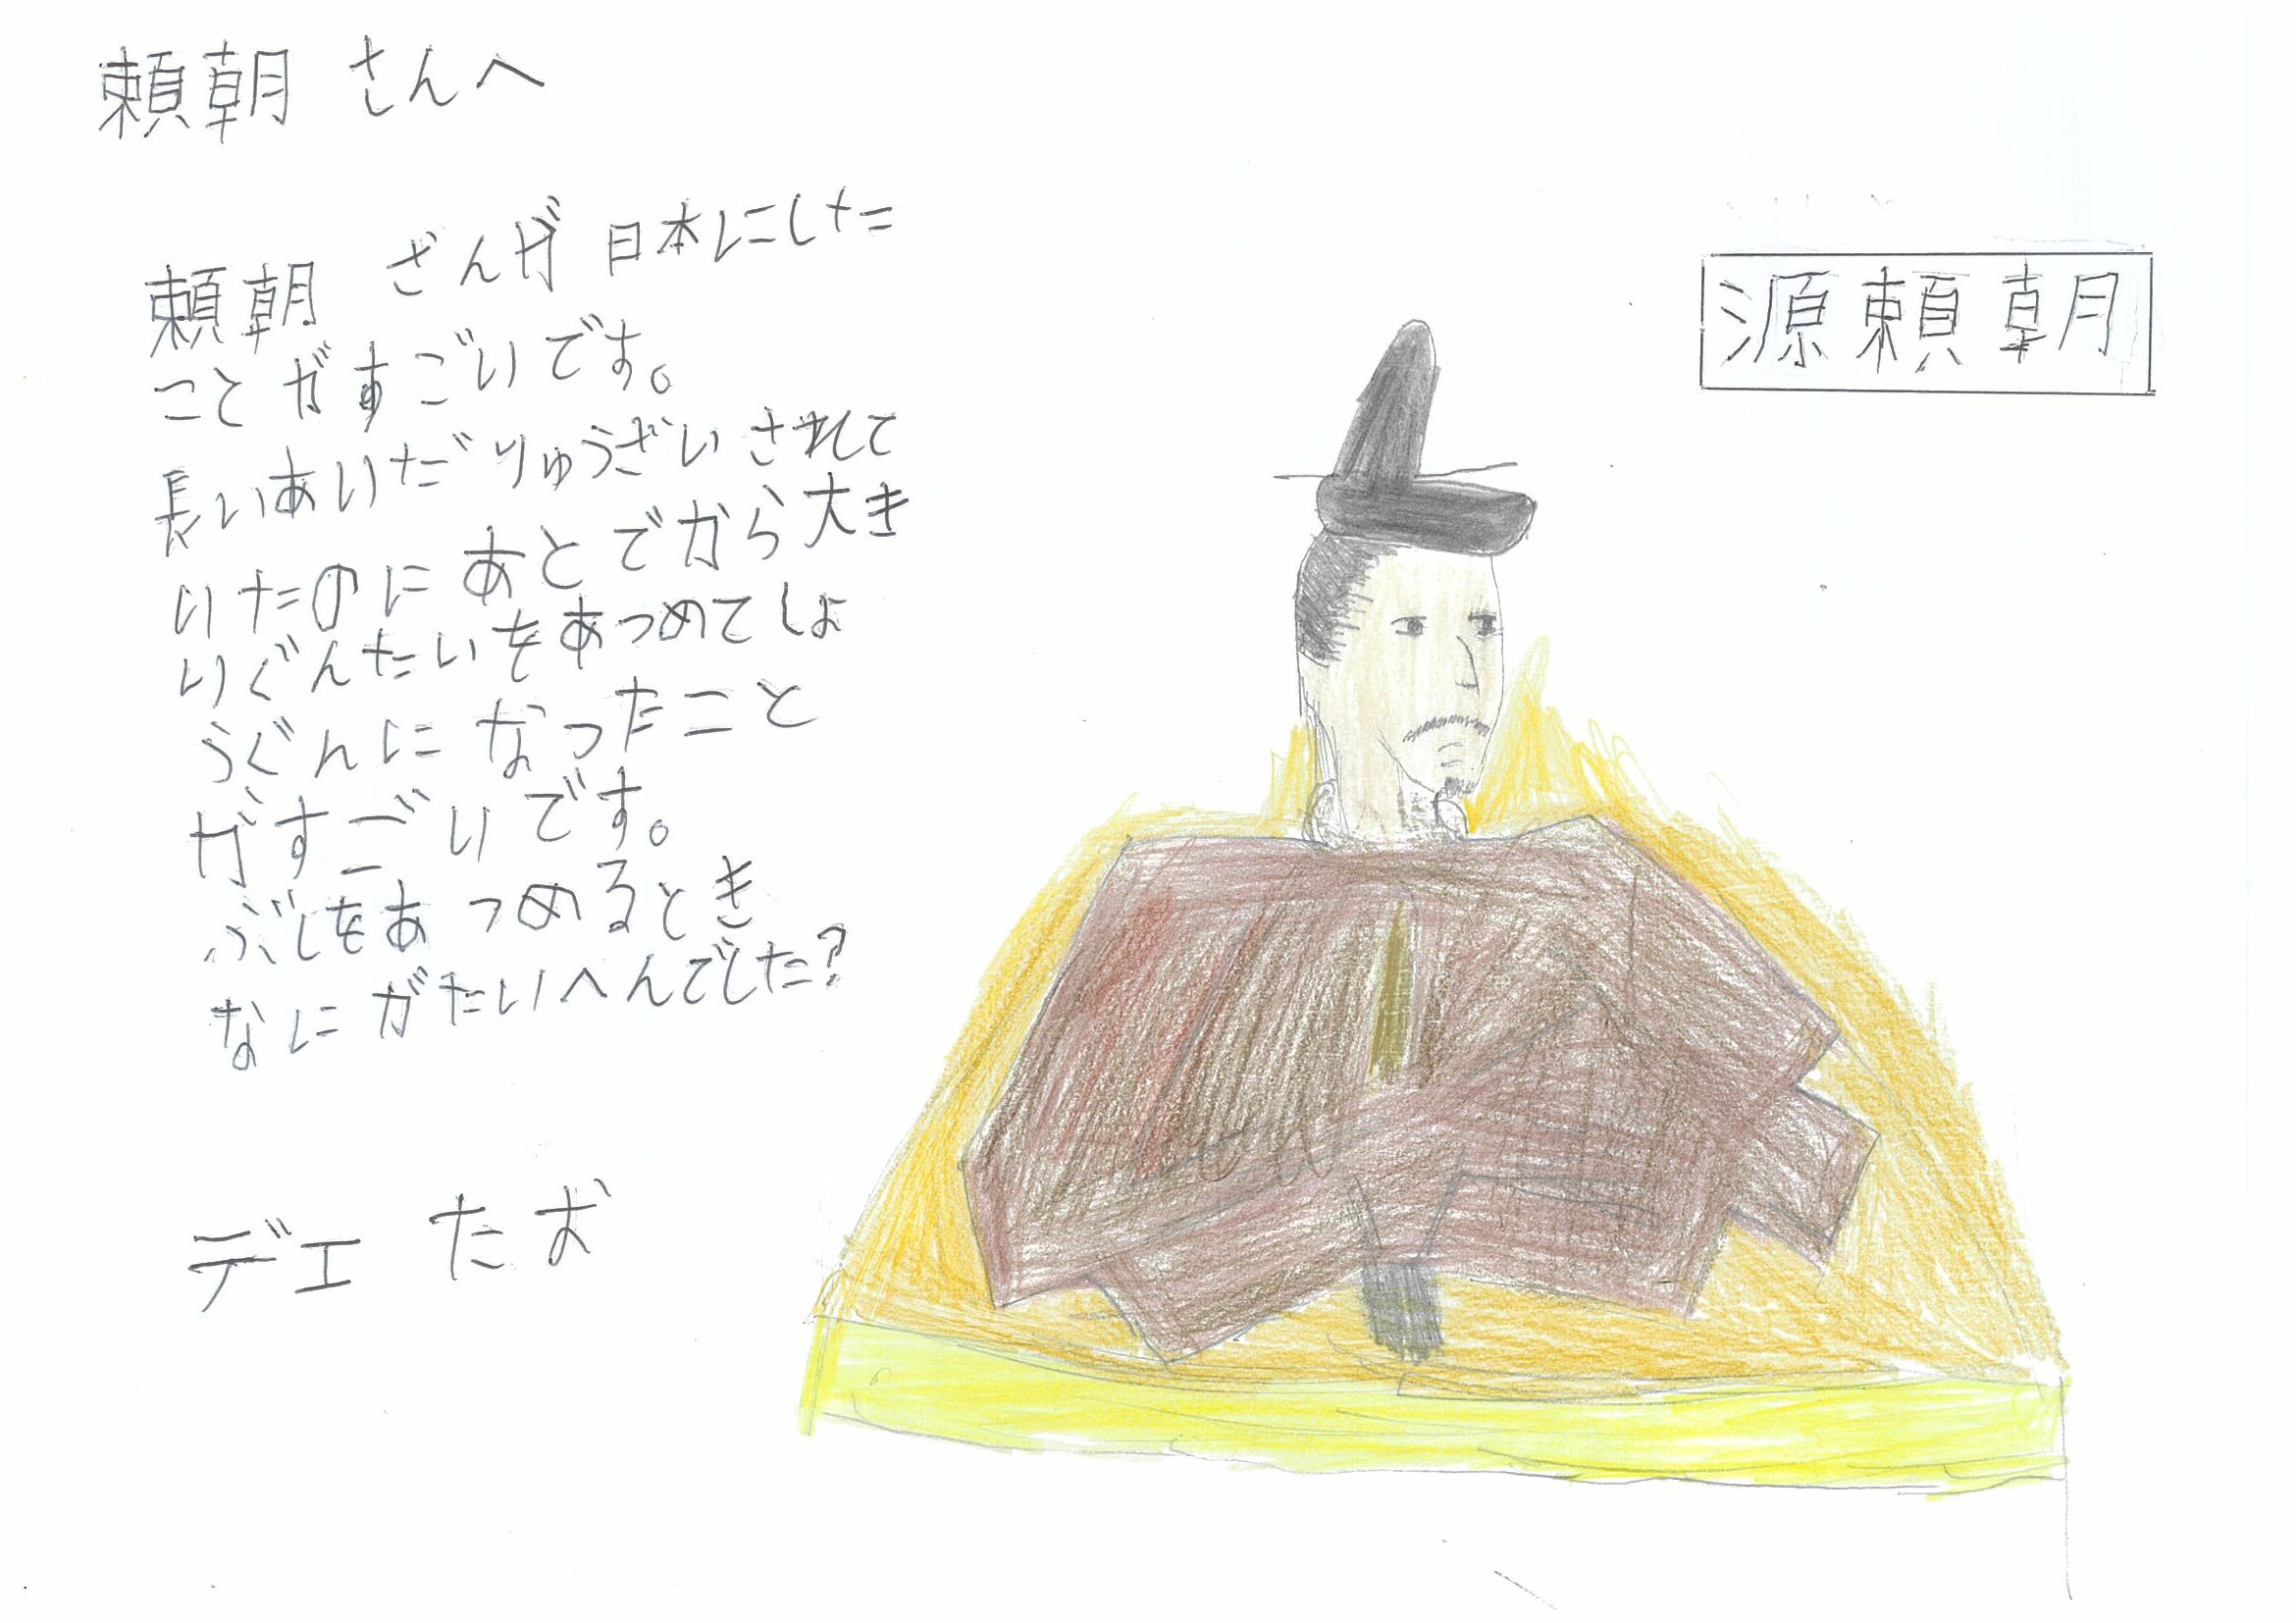 頼朝 さんへ
頼朝 ざんが 日本にした
ことがすごいです。
長いあいだりゅうざいされて
いたのにあとでから大き
いぐんたいをあつめてしょ
うぐんになったこと
がすごいです。
ぶしをあつめるとき
なにがたいへんでした?
デエ たお
源頼朝